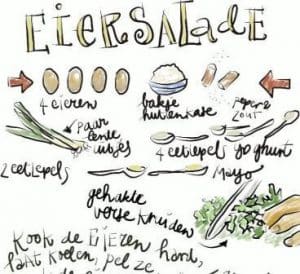 EIERSALADE
4 eieren
bakje huttenkase
peper & zout
paar lente uitjes
4 eetlepels yoghurt
2 eetlepels Mayo
gehakte verse kruiden
Kook de EIEREN hard,
laat koelen, pel ze